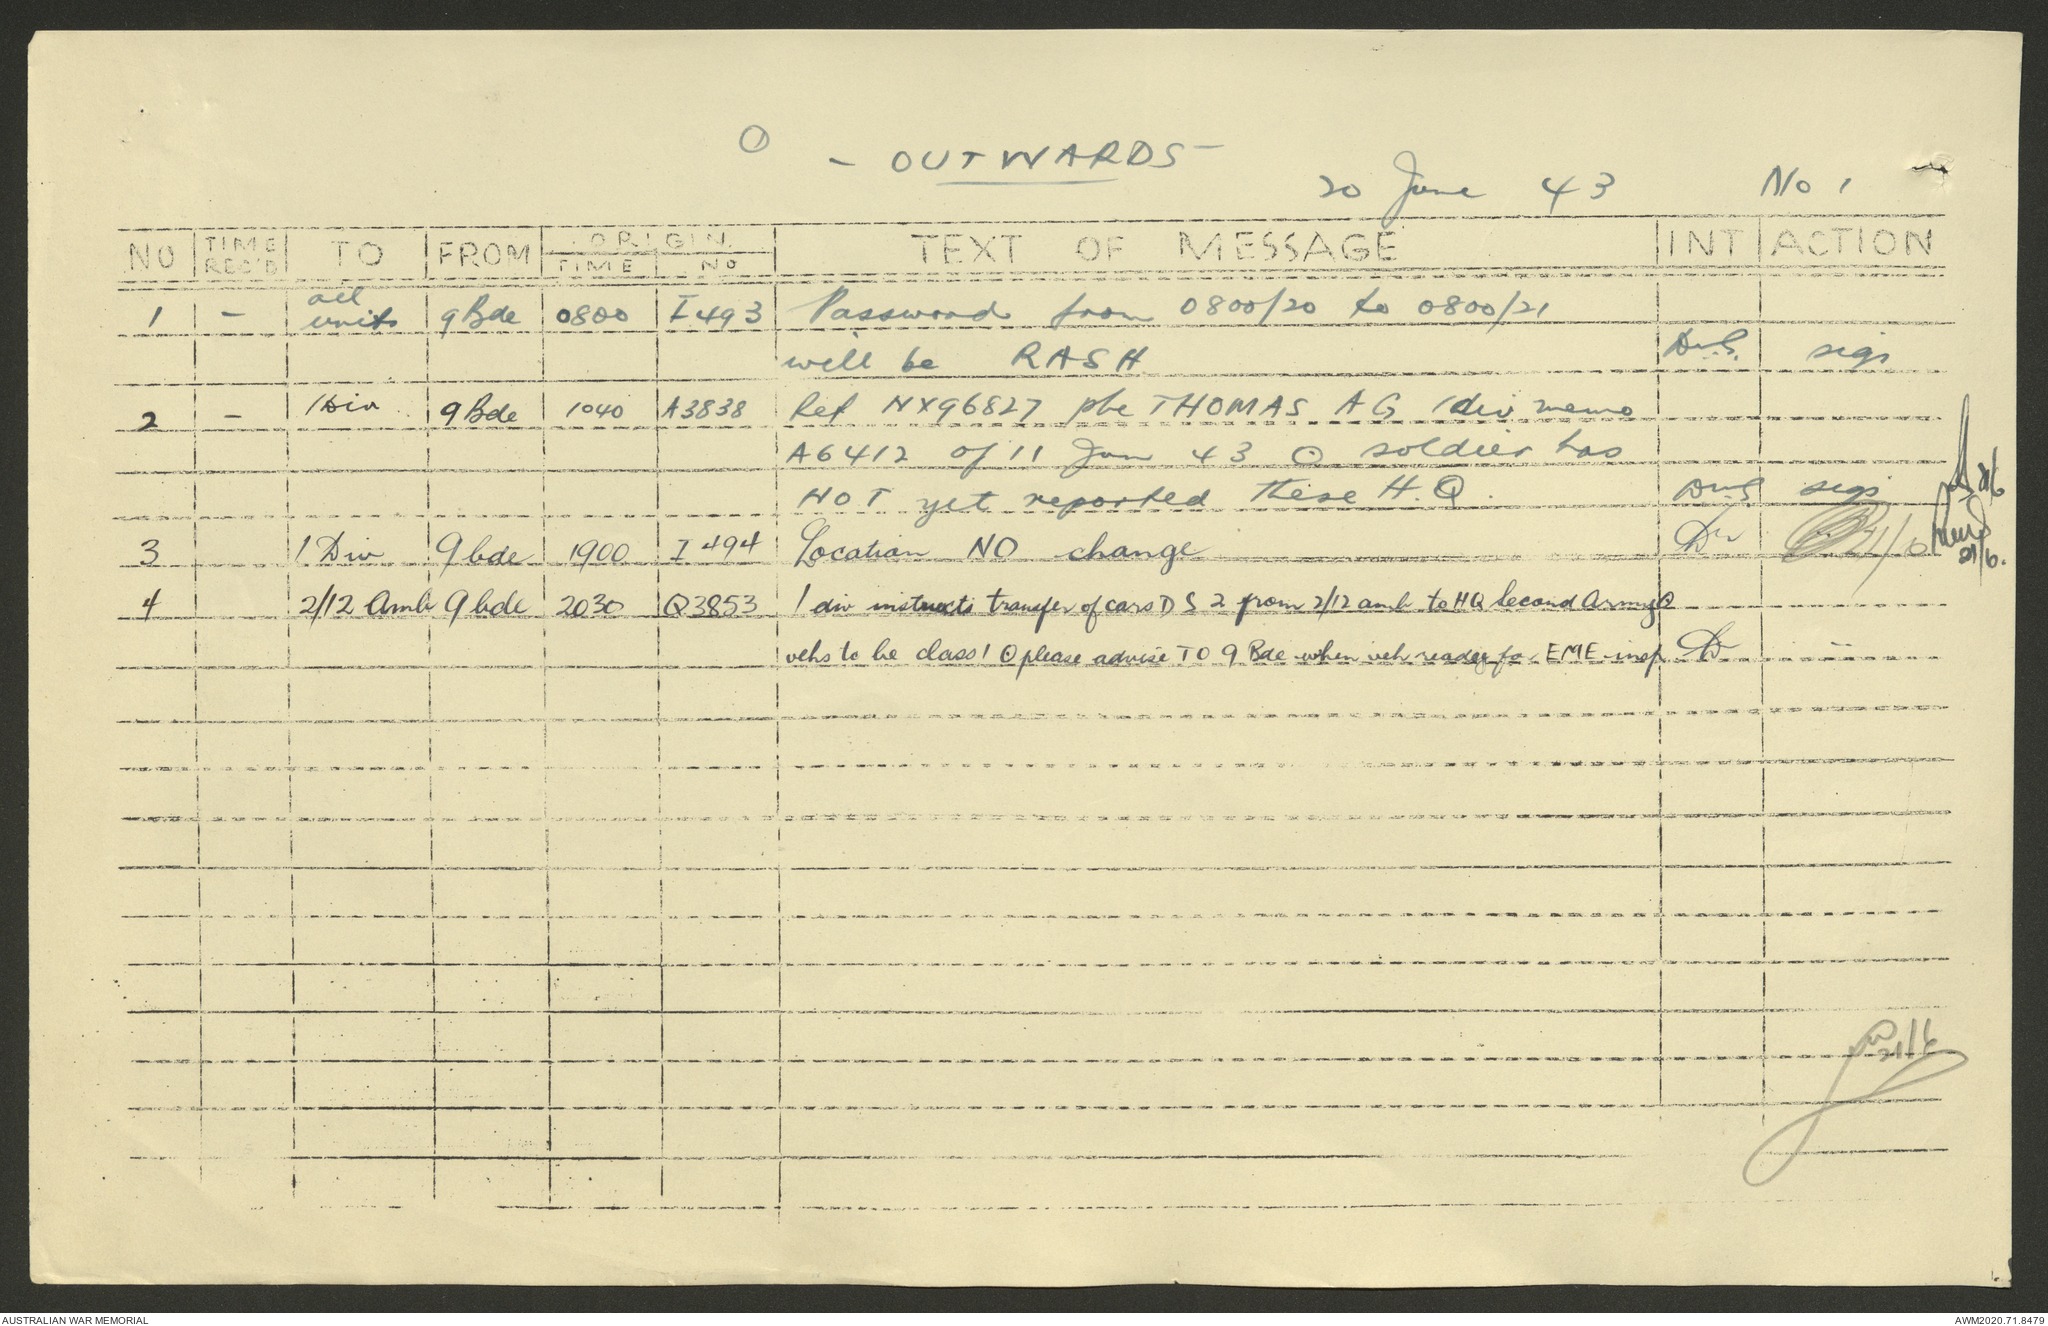 ① - OUTWARDS -
20 June 43 No 1
NO TIME REC'D TO FROM ORIGIN TIME NO TEXT OF MESSAGE INT ACTION
1 - all units 9 Bde 0800 I 493 Password from 0800/20 to 0800/21
will be RASH sigs
2 - 1 Div 9 Bde 1040 A3838 Ref NX96827 pte THOMAS AG 1 div memo
A6412 of 11 Jun 43 ⊙ soldier has
NOT yet reported these H.Q. sigs
21/6
3 1 Div 9 bde 1900 I 494 Location NO change
21/6.
4 2/12 Amb 9 bde 2030 Q3853 1 div instructs transfer of cars D S 2 from 2/12 amb to HQ Second Army ⊙
vehs to be class 1 ⊙ please advise TO 9 Bde when veh ready for EME insp
21/6
AUSTRALIAN WAR MEMORIAL AWM2020.71.8479